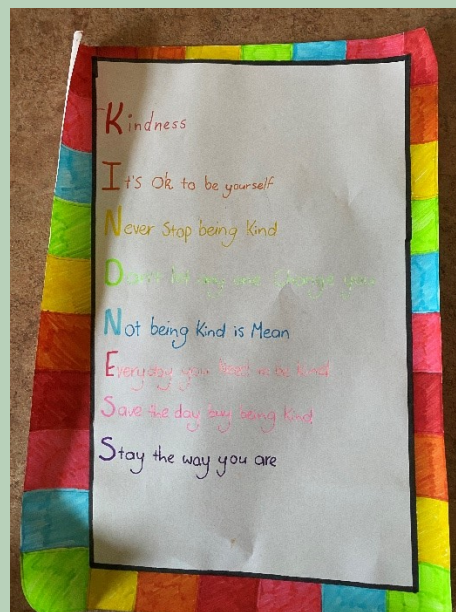 Kindness
It's Ok to be yourself
Never Stop being Kind
Don't let any one Change you
Not being Kind is Mean
Everyday you Need to be Kind
Save the day buy being Kind
Stay the way you are